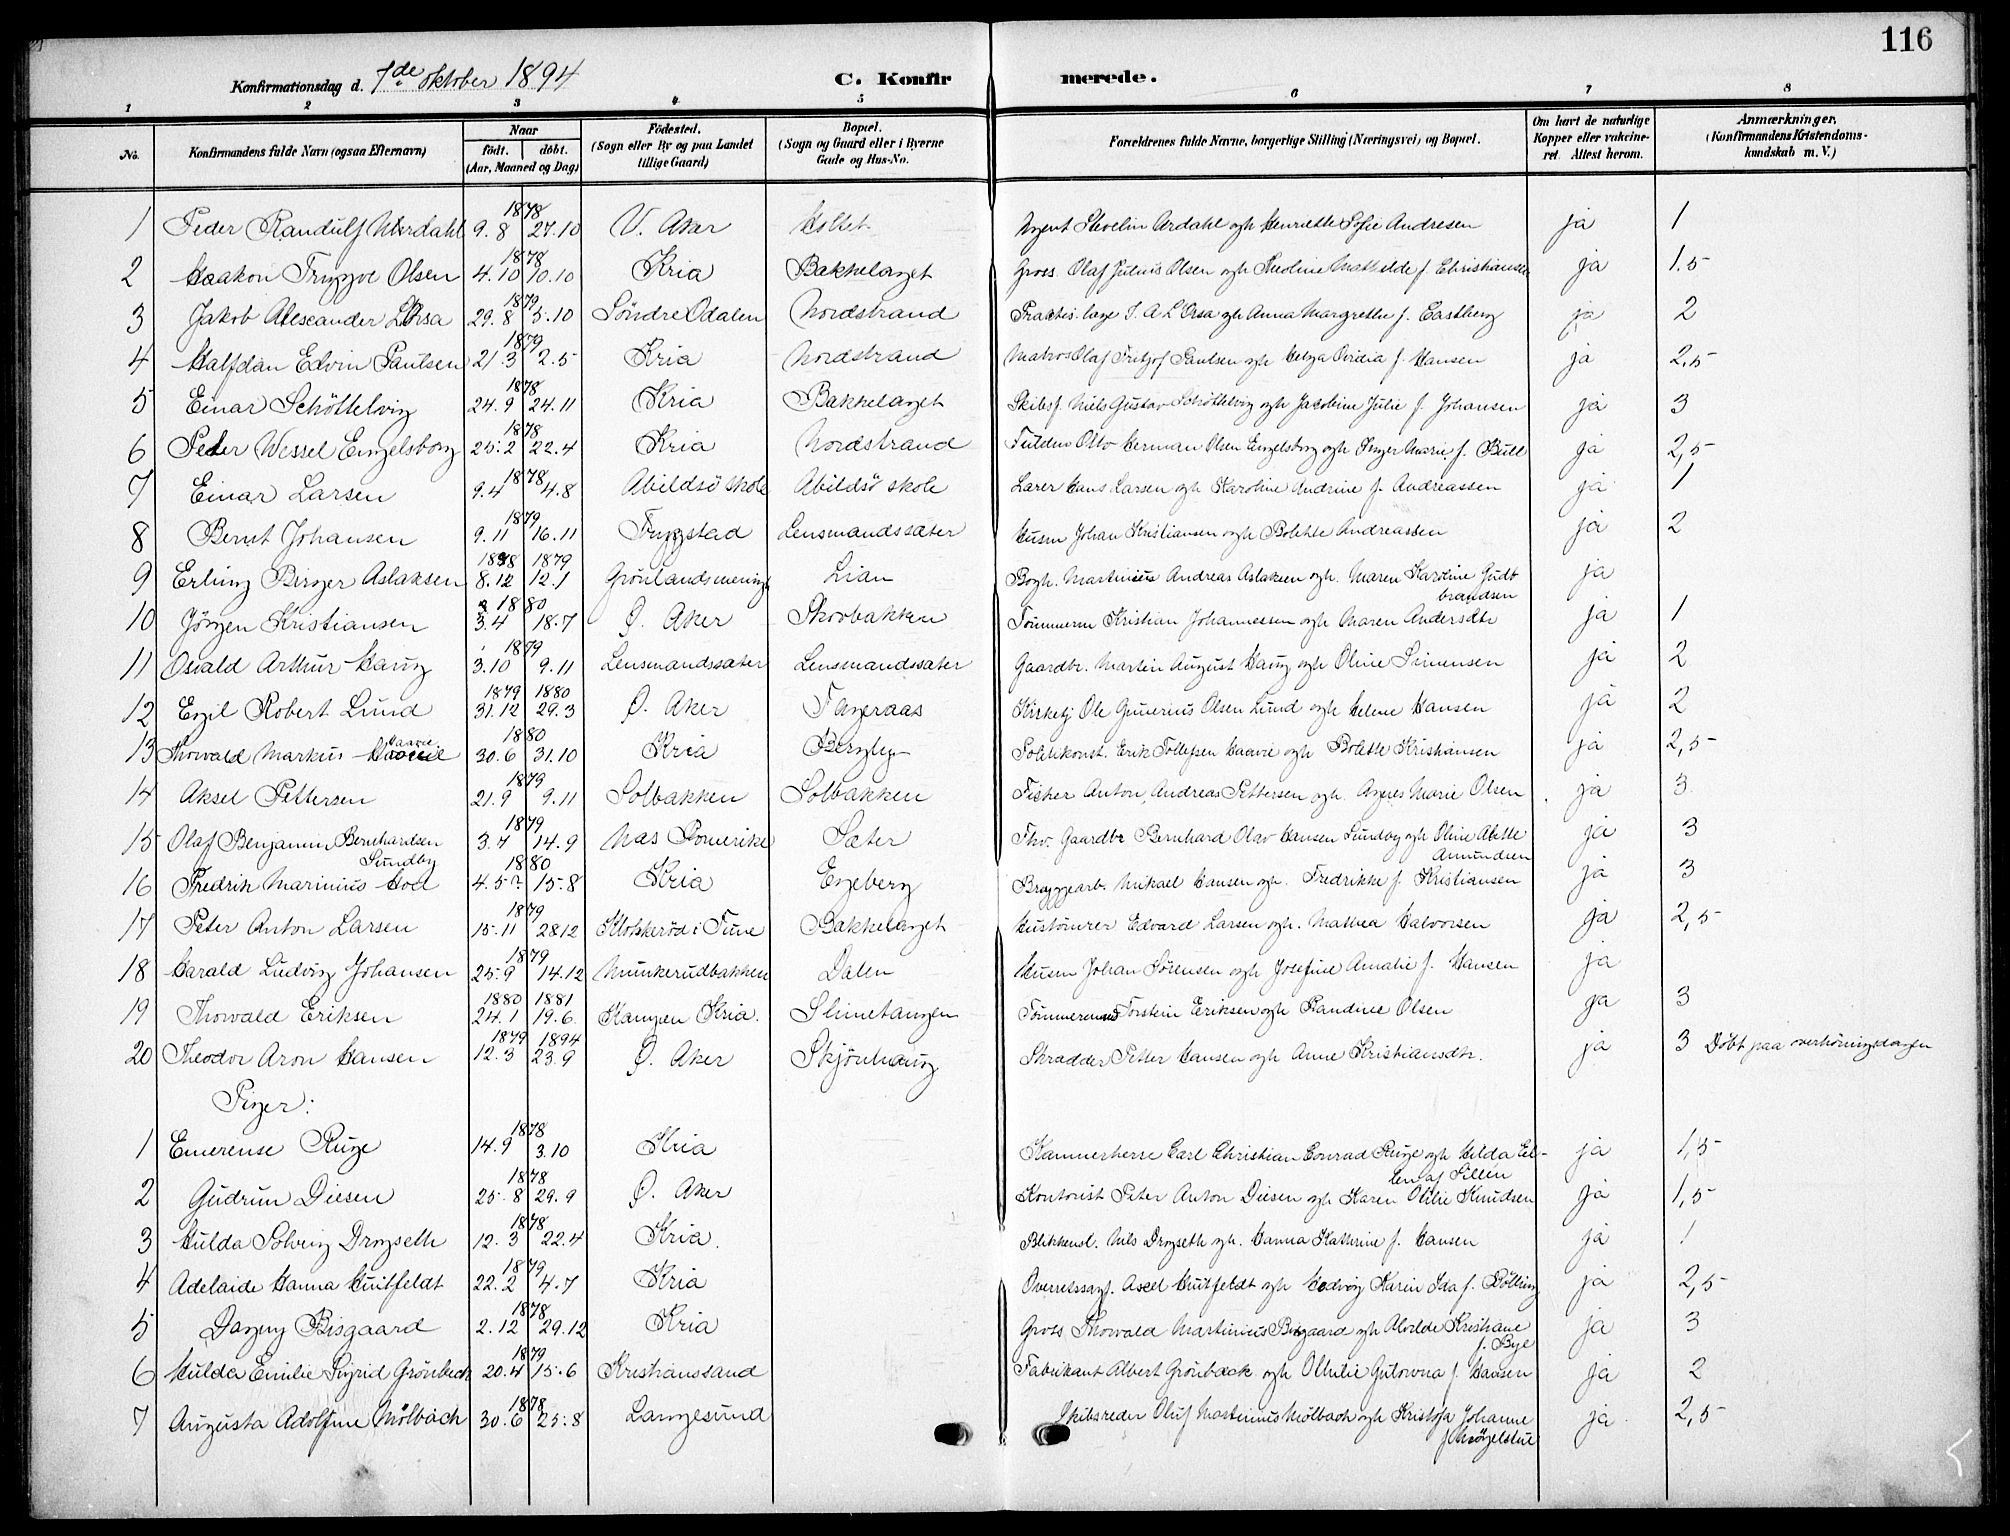 116
Konfirmationsdag d. 7de oktober 1894 C. Konfirmerede.
1 2 3 4 5 6 7 8
No. Konfirmandens fulde Navn (ogsaa Efternavn) Naar födt. döbt. (Aar, Maaned og Dag) Födested. (Sogn eller By og paa Landet tillige Gaard) Bopæl. (Sogn og Gaard eller i Byerne Gade og Hus-No. Forældrenes fulde Navne, borgerlige Stilling (Næringsvei) og Bopæl. Om havt de naturlige Kopper eller vakcineret. Attest herom. Anmærkninger. (Konfirmandens Kristendomskundskab m. V.)
1878
1 Peder Randulf 9.8 27.10 V. Aker Holtet Agent Ardahl ogh Henriette Sofie Andresen ja 1
1878
2 Haakon Tryggve Olsen 4.10 10.10 Kria Bækkelaget Gross. Olaf Julius Olsen ogh Theoline Mathilde f. Christiansen ja 1.5
1879
3 Jakob Alexander L'Orsa 29.8 5.10 Söndre Odalen Nordstrand Practis. læge J. A. L'Orsa ogh Anna Margrethe f. Eastberg ja 2
1879
4 Halfdan Edvin Paulsen 21.3 2.5 Kria Nordstrand Matros Olaf Fritjof Paulsen ogh Helga Ovidia f. Hansen ja 2,5
1878
5 Einar Schöttelvig 24.9 24.11 Kria Bækkelaget Skibsf. Niels Gustav Schöttelvig ogh Jacobine Julie f. Johansen ja 3
1878
6 Peder Wessel Engelsborg 25.2 22.4 Kria Nordstrand Otto Herman Olsen Engelsborg ogh Inger Marie f. Bull ja 2,5
1878
7 Einar Larsen 9.4 4.8 Abildsö skole Abildsö skole Lærer Hans Larsen ogh Karoline Andrine f. Andreassen ja 1
1879
8 Bernt Johansen 9.11 16.11 Trygstad Lensmandssæter Husm Johan Kristiansen ogh Bolette Andreassen ja 2
1878 1879
9 Erling Birger Aslaksen 8.12 12.1 Grönlandsmenig. Lian Bogh. Martinius Andreas Aslaksen ogh. Maren Karoline Gudbrandsen ja
1880
10 Jörgen Kristiansen 3.4 18.7 Ö. Aker Skovbakken Tömmerm Kristian Johannessen ogh Maren Andersdtr ja 1
1879
11 Osvald Arthur Haug 3.10 9.11 Lensmandssæter Lensmandssæter Gaardbr. Martin August Haug ogh Oline Simensen ja 2
1879 1880
12 Egil Robert Lund 31.12 29.3 Ö. Aker Fageraas Kirketj Ole Gunerius Olsen Lund ogh Helene Hansen ja 2
1880
13 Thorvald Markus Haavie 30.6 31.10 Kria Bergly Politikonst. Erik Tollefsen Haavie ogh Bolette Kristiansen ja 2,5
1879
14 Aksel Pettersen 21.9 9.11 Solbakken Solbakken Fisker Anton Andreas Pettersen ogh. Agnes Marie Olsen ja 3
1879
15 Olaf Benjamin Bernhardsen Sundby 3.7 14.9 Næs Romerike Sæter Fhv. Gaardbr Bernhard Olav Hansen Sundby ogh Oline Alette Amundsen ja 3
1880
16 Fredrik Marinius Holl 4.5? 15.8 Kria Egeberg Bryggearb. Mikael Hansen ogh. Fredrikke f. Kristiansen ja 3
1879
17 Peter Anton Larsen 15.11 28 12 Klokkeröd i Tune Bækkelaget Hustömrer Edvard Larsen ogh. Mathea Halvorsen ja 2,5
1879
18 Harald Ludvig Johansen 25.9 14.12 Munkerudbakken Dalen Husm Johan Sörensen ogh Josefine Amalie f. Hansen ja
1880 1881
19 Thorvald Eriksen 24.1 19.6. Kampen Kria. Slimetangen Tömmermand Torstein Eriksen ogh Randine Olsen ja 3
1879 1894
20 Theodor Aron Hansen 12.3 23.9 Ö. Aker Skjönhaug Skrædder Petter Hansen ogh Anne Kristiansdtr. ja 3 Döbt paa overhöringsdagen
Piger:
1878
1 Emerense Ruge 14.9 3.10 Kria Kammerherre Carl Christian Conrad Ruge ogh Hilda Ellen af Sillén ja 1,5
1878
2 Gudrun Diesen 25.8 29.9 Ö. Aker Kontorist Peter Anton Diesen ogh Karen Otilie Knudsen ja 1,5
1878
3 Hulda Solveig Drogseth 12.3 22.4 Kria. Blikkensl. Nils Drogseth ogh. Hanna Kathrine f. Hansen ja 1
1879
4 Adelaide Hanna Huitfeldt 22.2 4.7 Kria Overretssagf. Axel Huitfeldt ogh Hedvig Karin Ida f. Kölling ja 2,5
1878
5 Dagny Bisgaard 2.12 29.12 Kria Gross. Thorvald Martinius Bisgaard ogh Alvilde Kristiane f. Bye ja 3
1879
6 Hulda Emilie Sigrid Grönbech 20.4 15.6 Kristianssand Fabrikant Albert Grönbæck ogh Othilie f. Hansen ja 2
1878
7 Augusta Adolfine Mölbach 30.6 25.8 Langesund Skibsreder Oluf Martinius Mölbach ogh Kristofa Johanne ja 2,5